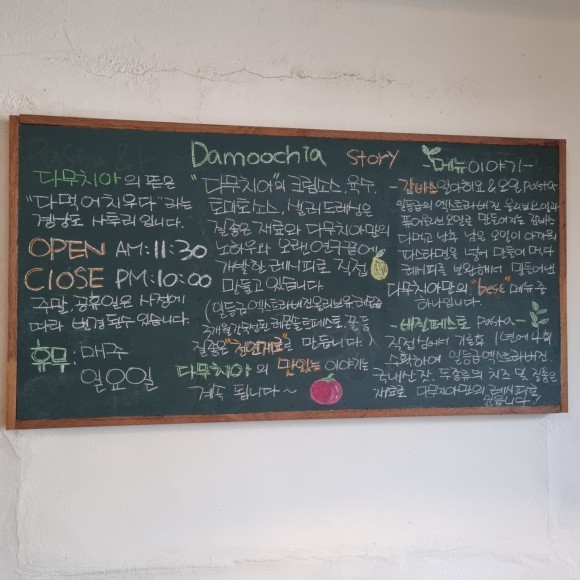 Damoochia Story
다무치아의 뜻은
"다먹어치우다"라는
경상도 사투리입니다.
OPEN AM:11:30
ClOSE PM:10:00
주말, 공휴일은 사정에
따라 변경될수 있습니다.
휴무:매주
일요일
"다무치아"의 크림소스, 육수,
토마토소스, 샐러드드레싱은
질좋은 재료와 다무치아만의
노하우와 오랜연구끝에
개발한 레시피로 직접
만들고 있습니다
질좋은 "천연재료"로 만듭니다.
다무치아의 맛있는 이야기는
계속 됩니다~
-메뉴이야기-
-감바스 알아히오 & 오일 Pasta-
일등급의 엑스트라버진 올리브오일과
퓨어올리브오일로 만들어지는 감바스
다먹고 난후 남은 오일이 아까워
파스타면을 넣어 만들어 먹다
레시피를 보완해서 만들어낸
다무치아만의 "best"메뉴중
하나입니다.
-바질페스토 Pasta-
직접 기른후 1년에 4회
수확하여 일등급엑스트라버진
국내산 잣, 두종류의 치즈 및 질좋은
재료로 다무치아만의레시피로